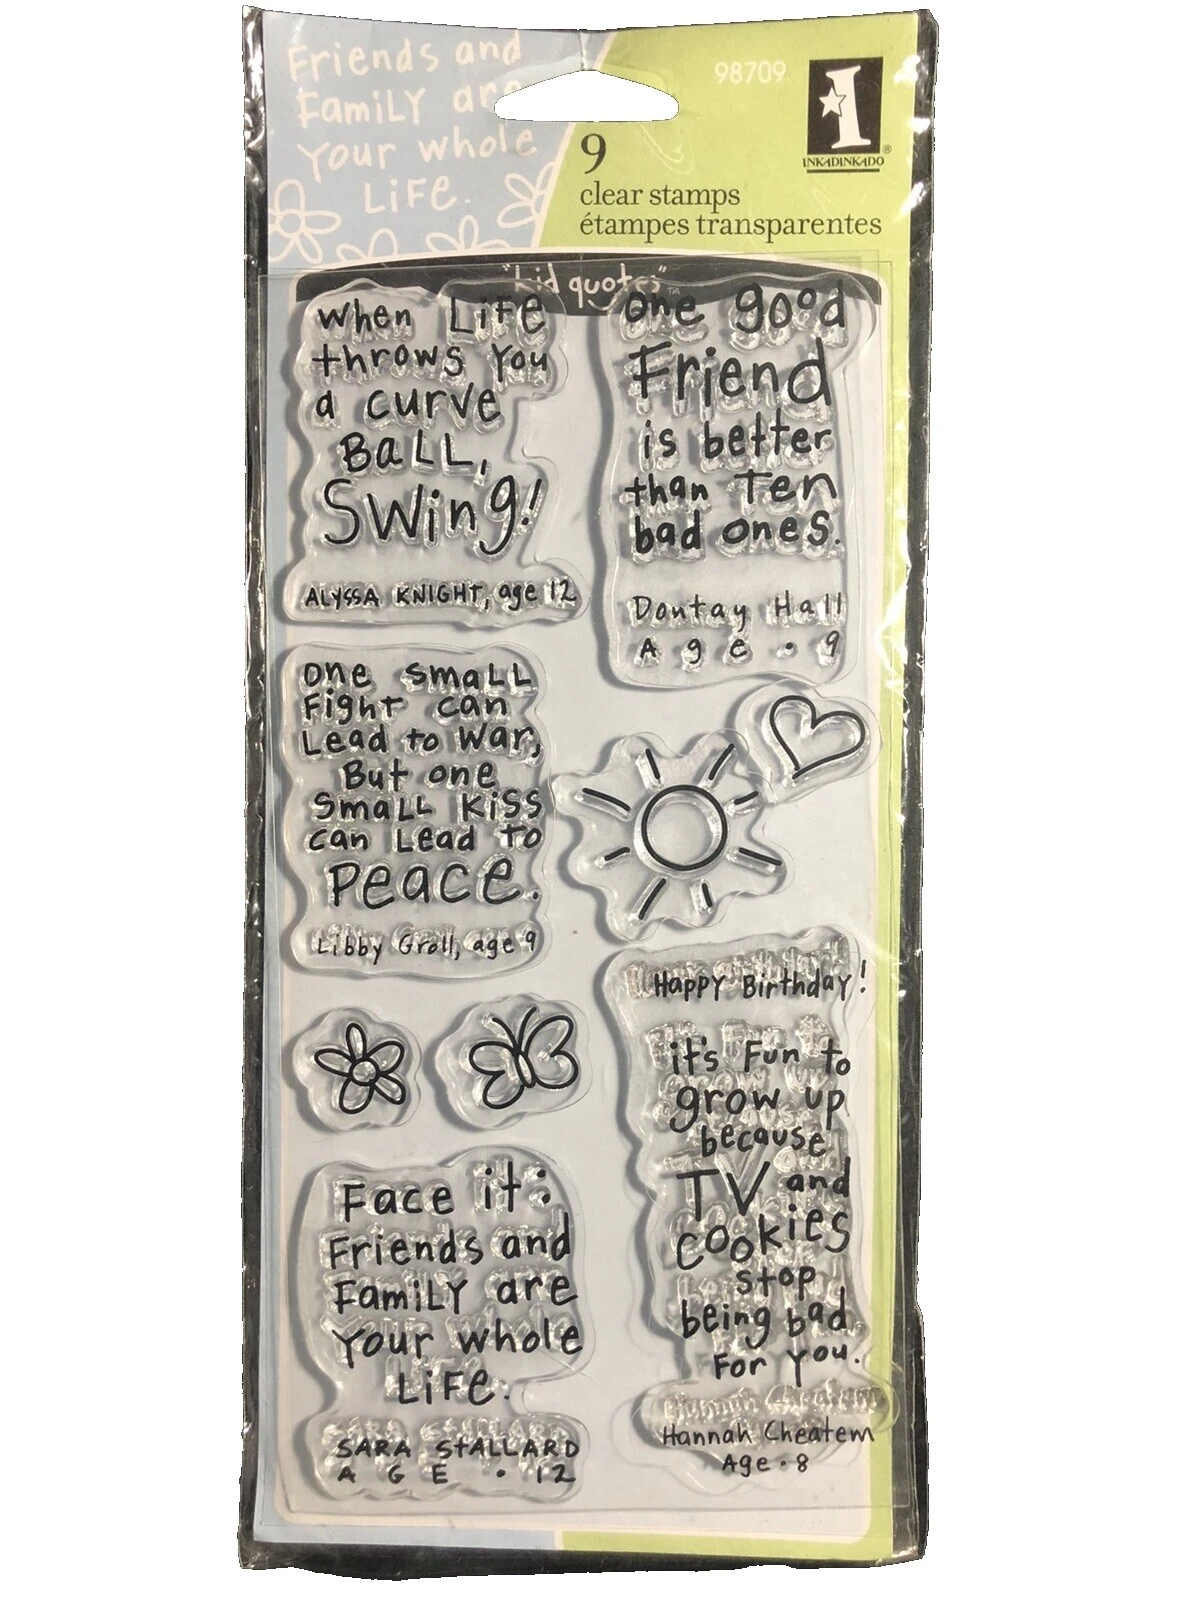 Friends and
Family are
Your whole
Life.
98709
1
INKADINKADO®
9
clear stamps
étampes transparentes
"kid quotes"™
When Life
throws You
a curve
BaLL,
Swing!
ALYSSA KNIGHT, age 12
One good
Friend
is better
than Ten
bad ones.
Dontay Hall
Age • 9
One small
Fight can
Lead to War,
But one
SmaLL Kiss
can Lead to
Peace.
Libby Groll, age 9
Happy Birthday!
it's Fun to
grow up
because
TV and
cookies
stop
being bad
For You.
Hannah Cheatem
Age • 8
Face it:
Friends and
Family are
Your whole
Life.
SARA StALLARD
AGE • 12